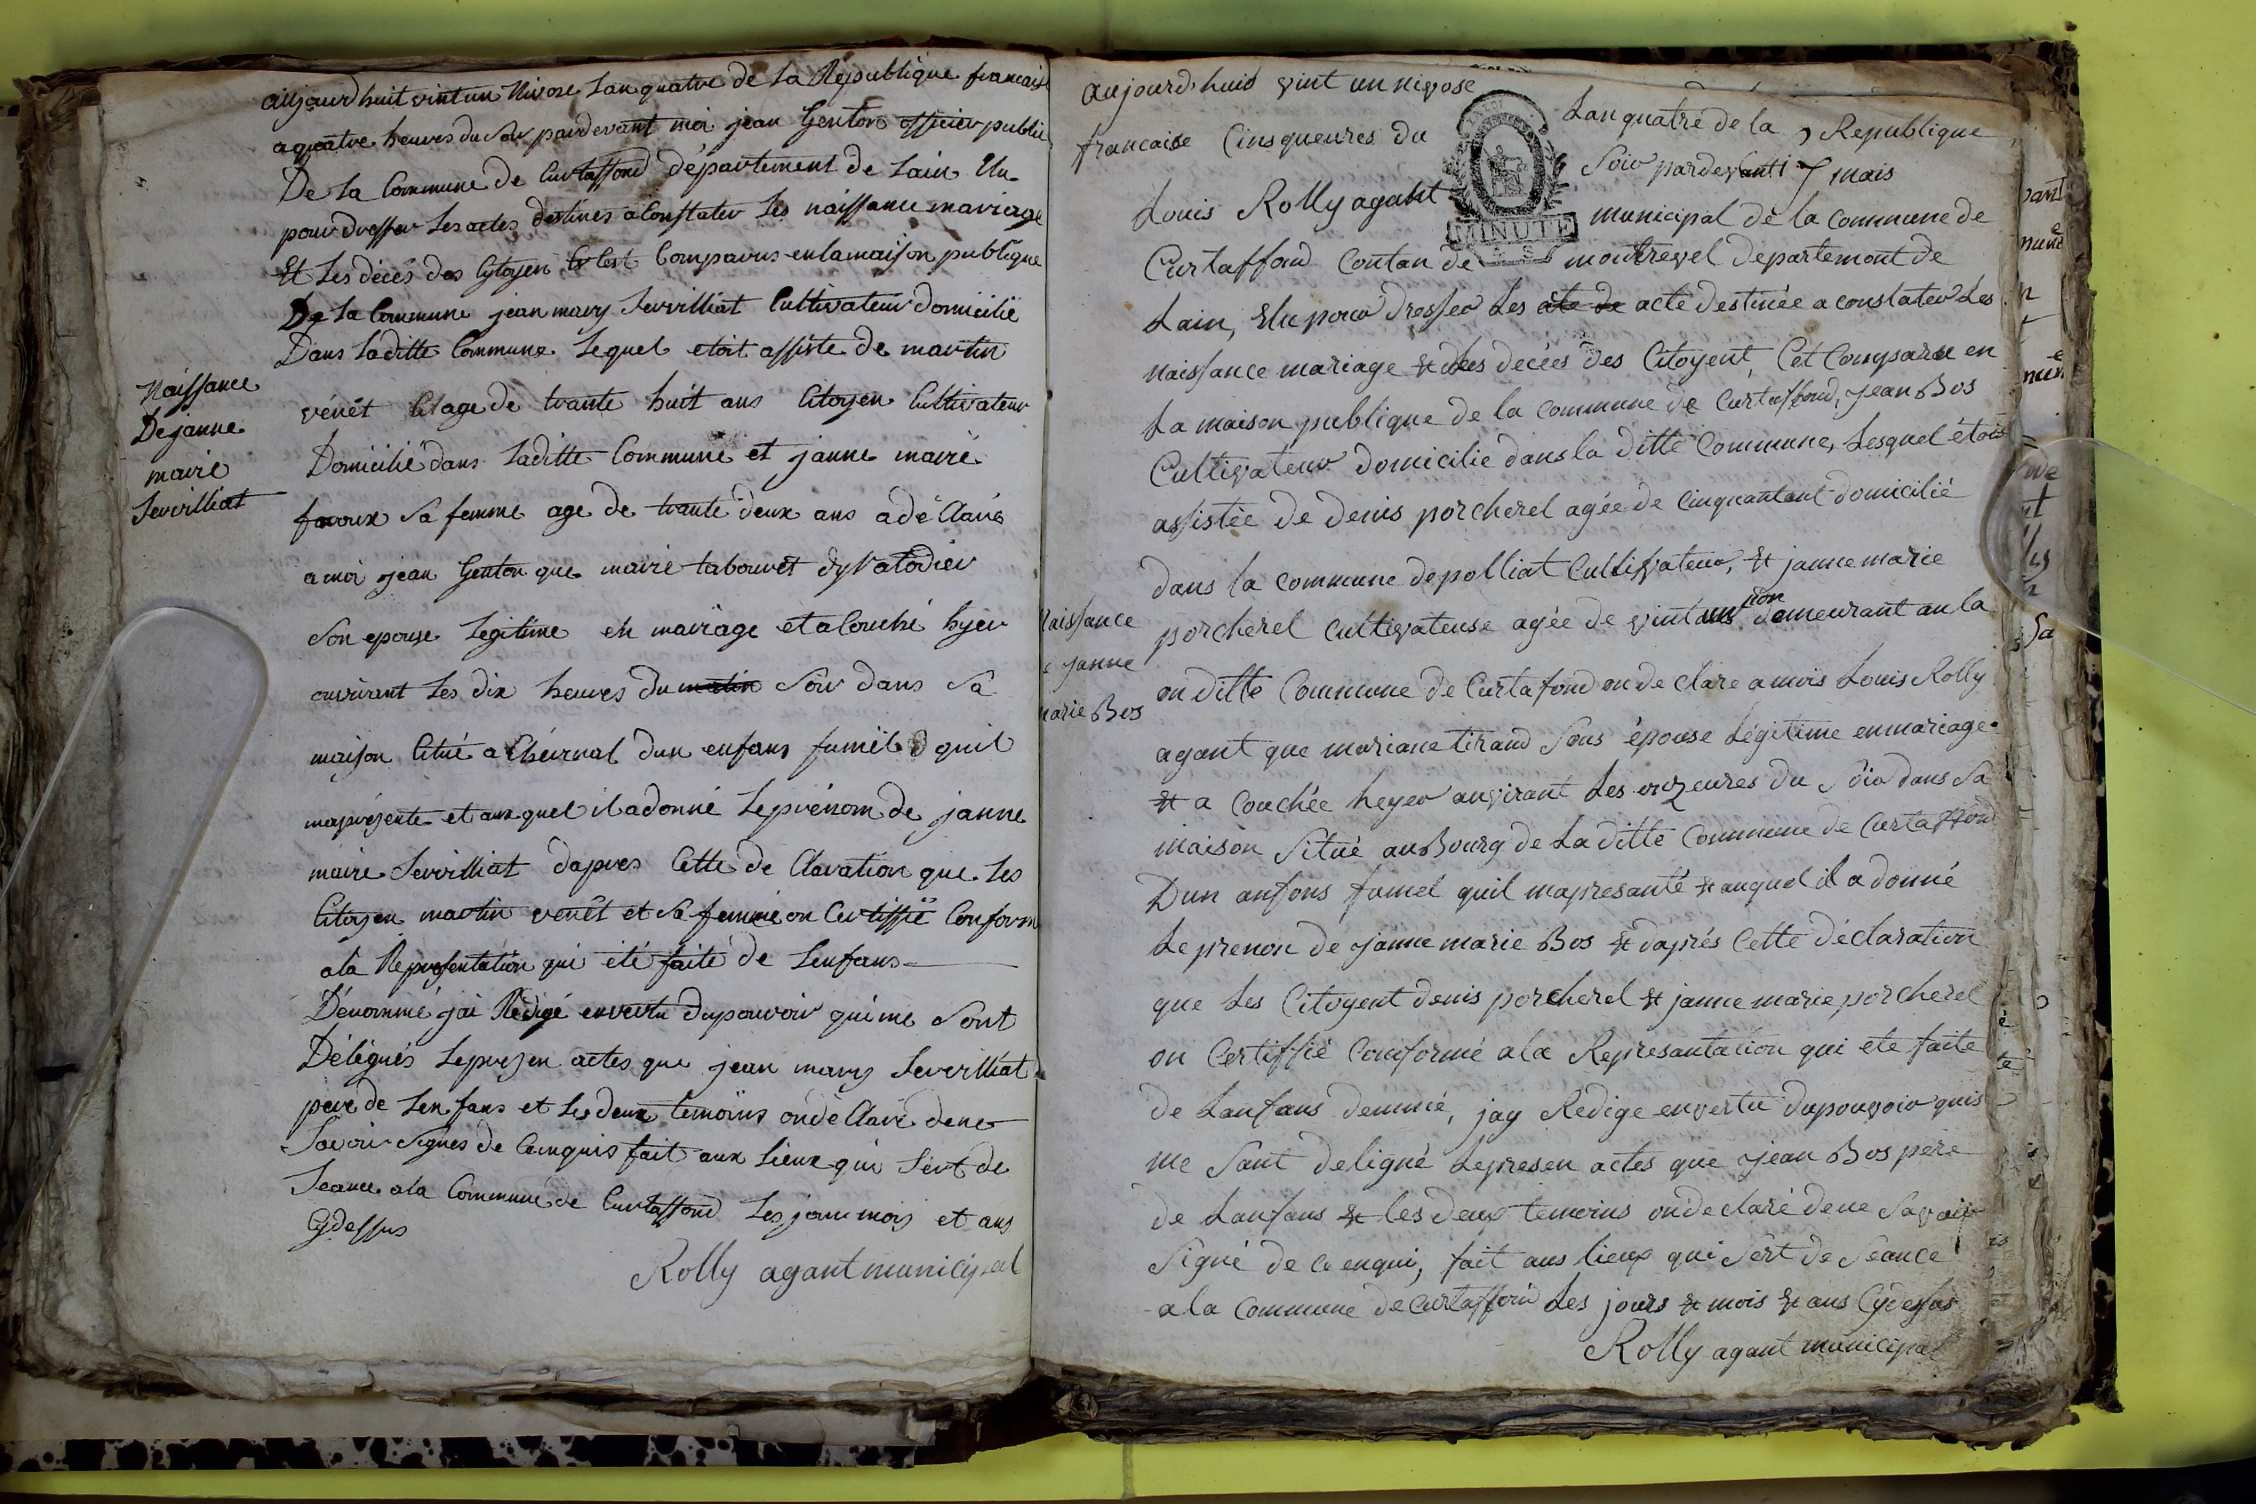 aujourdhuit vint un Nivose Lan quatre de La Republique francaise
a quatre heures du Soir pardevant moi jean Genton officier public
De La Commune de Curtaffond département de Lain Elu
pour dresser Les actes destines a Constater Les naissance mariage
Et Les décés des Cytoyen Cest Comparus en la maison publique
De La Commune jean mary Servilliat Cultivateur domicilié
Dans Laditte Commune Lequel etoit assiste de martin
venêt age de trante huit ans Citoyen Cultivateur
Domicilié dans Laditte Commune et janne mairé
favoux Sa femme age de trante deux ans a déClairé
a moi jean Genton que mairie tabouret dyvatodier
Son epouse Legitime en mairage et a Couché hyer
anvirant Les dix heures du matin Soir dans Sa
maison Citué a Cheirnal dun enfans fumêl quil
maprésente et auquel il a donné Le prénom de janne
maire Servilliat dapres Cette de Claration que Les
Citoyen martin venêt et Sa femme on Certiffié Conform
ala Representation qui été faite de Lenfans
Dénommé jai Rédigé envertu dupouvoir qui me Sont
Délégués Le presen actes que jean mary Servilliat
pere de Lenfans et Les deux temoins on dé Claré dene
Savoir Signes de Cenquis fait aux Lieux qui Sert de
Seance a la Commune de Curtaffond Les jour mois et ans
Cydessus
Rolly agant municipal
Naissance
De janne
maire
Servilliat
aujourd'huid vint un nivose Lan quatré de la Republique
francaise Cinsqueures du Soir pardevant mais
Louis Rolly agant municipal de la commune de
MINUTE
Curtaffond Contan de montrevel departement de
Lain, Elu pour dresser Les ate de acte destinée a constater Les
naissance mariage & Les decées des Citoyent, Cet Comparue en
La maison publique de la commune de Curtaffond, Jean Bos
Cultivateur domicilie dans la ditte Commune, Lesquel étois
assistée de denis porcherel agée de Cinquantant domicilié
dans la commune de polliat Cultivateur, & janne marie
porcherel cultivateuse agée de vint demeurant an la
on ditte Commune de Curtafond on de clare a mois Louis Rolly
agant que mariane tirand Sons épouse Légitime en mariage
& a Couchée heyer anvirant Les onzeures du Soir dans Sa
maison Situé au Bourg de La ditte Commune de Curtaffond
Dun anfons famel quil mapresanté & auquel il a donné
Le prenon de Janne marie Bos & daprés Cette déclaration
que Les Citoyent denis porcherel & janne marie porcherel
on Certiffié Conformé a la Represantation qui ete faite
de Lanfans denmé, jay Redige envertu dupouvoir quis
me Sant deligné Le presen actes que Jean Bos père
de Lanfans & les deux temoins on declaré dene Savoir
Signé de Ce enqui, fait aus lieux qui Sert de Séance
a la commune de Curtaffond Les jours & mois & ans Cydessus
Rolly agant municipal
Naissance
janne
marie Bos